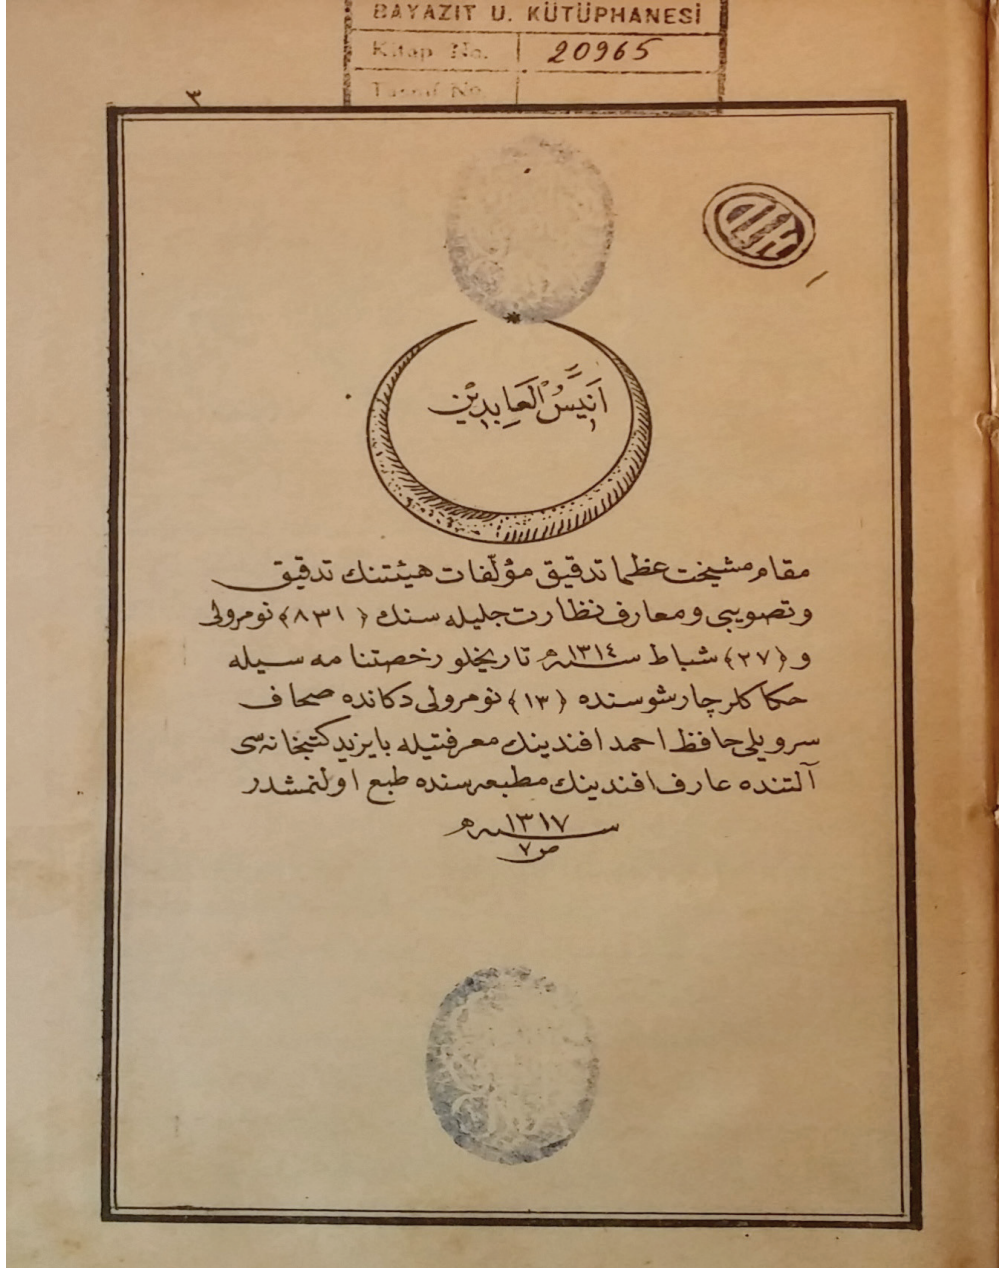 BAYAZIT U. KÜTÜPHANESİ
Kitap No. 20965
Tasnif No.
٣
اَنِيسُ الْعَابِدِيْن
مقام مشيخت عظما تدقيق مؤلّفات هيئتنك تدقيق
وتصويبى ومعارف نظارت جليله سنك ﴿٨٣١﴾ نومرولى
و﴿٢٧﴾ شباط سنه ١٣١٤ تاريخلو رخصتنا مه سيله
حكاكلر چارشوسنده ﴿١٣﴾ نومرولى دكانده صحاف
سرويلى حافظ احمد افندينك معرفتيله بايزيد كتبخانه سى
آلتنده عارف افندينك مطبعه سنده طبع اولنمشدر
سنه ١٣١٧
ص ٧